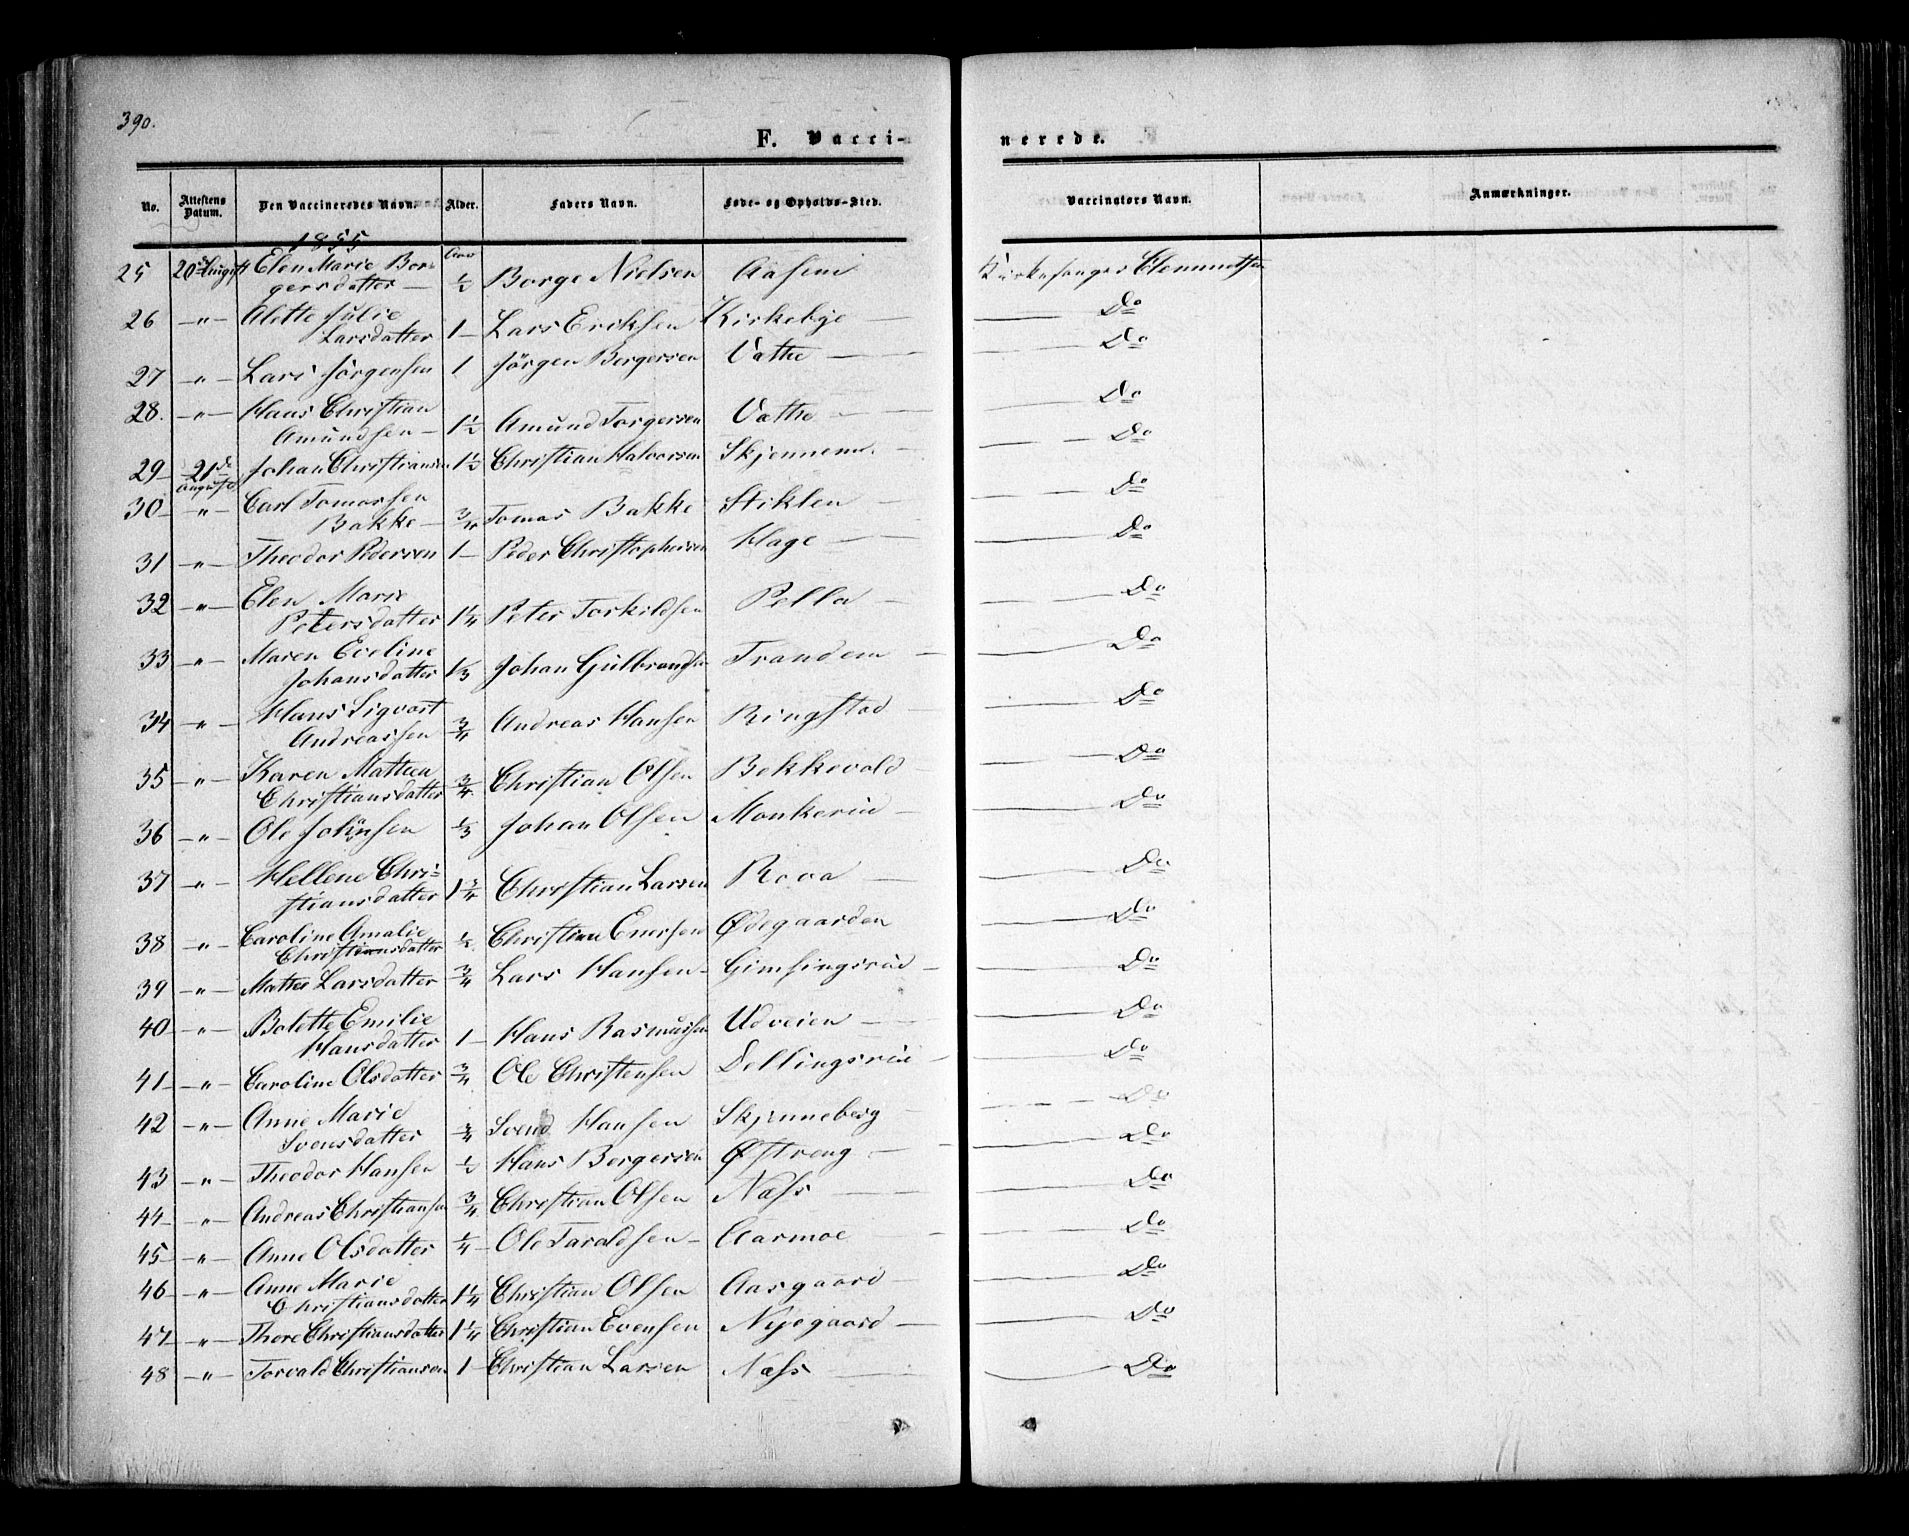 390.
F. Vacci-
nerede.
No. Attestens Datum. Den Vaccineredes Navn. Alder. Faders Navn. Føde- og Opholds-Sted. Vaccinators Navn. Anmærkninger.
1855
25 20de August Elen Marie Bor-
gersdatter — ½ Borge Nielsen Aaseni Kirkesanger Clemmetsen
26 —"— Alette Julie
Larsdatter 1— Lars Eriksen Kirkebye — Do
27 —"— Lars Jörgensen 1 Jörgen Bergersen Vathe — Do
28. —"— Hans Christian
Amundsen — 1½ Amund Torgersen Vathe — Do
29— 21de August Johan Christiansen 1½ Christian Halvorsen Skjennem — Do
30— —"— Carl Tomassen
Bakke — ¾ Tomas Bakke Stiklen — Do
31 —"— Theodor Pedersen 1— Peder Christophersen Hage — Do
32 —"— Elen Marie
Petersdatter 1¼ Peter Torkildsen Pella — Do
33 —"— Maren Eveline
Johansdatter 1⅓ Johan Gulbrandsen Trandem — Do
34 —"— Hans Sigvart
Andreassen ¾ Andreas Hansen Ringstad — Do
35 —"— Karen Mattea
Christiansdatter ¾ Christian Olsen Bekkevold — Do
36 —"— Ole Johnsen ⅓ Johan Olsen Monkerud — Do
37 —"— Hellene Chri-
stiansdatter 1¾ Christian Larsen Rova — Do
38 —"— Caroline Amalie
Christiansdatter ½ Christian Enersen Ødegaarden Do
39 —"— Mathea Larsdatter ¾ Lars Hansen — Gimsingsrud — Do
40 —"— Bolette Emilie
Hansdatter 1— Hans Rasmussen Udveien — Do
41— —"— Caroline Olsdatter ¾ Ole Christensen Dellingsrud — Do
42 —"— Anne Marie
Svensdatter ¾ Svend Hansen Skjenneberg Do
43 —"— Theodor Hansen ½ Hans Bergersen Østreng — Do
44— —"— Andreas Christiansen ¾ Christian Olsen Næss — Do
45— —"— Anne Olsdatter ¼— Ole Taraldsen — Aarmoe — Do
46— —"— Anne Marie
Christiansdatter 1¼ Christian Olsen Aasgaard — Do
47— —"— Thore Christiansdatter 1¼ Christian Evensen Nyegaard — Do
48 —"— Torvald Christiansen 1— Christian Larsen Næss — Do